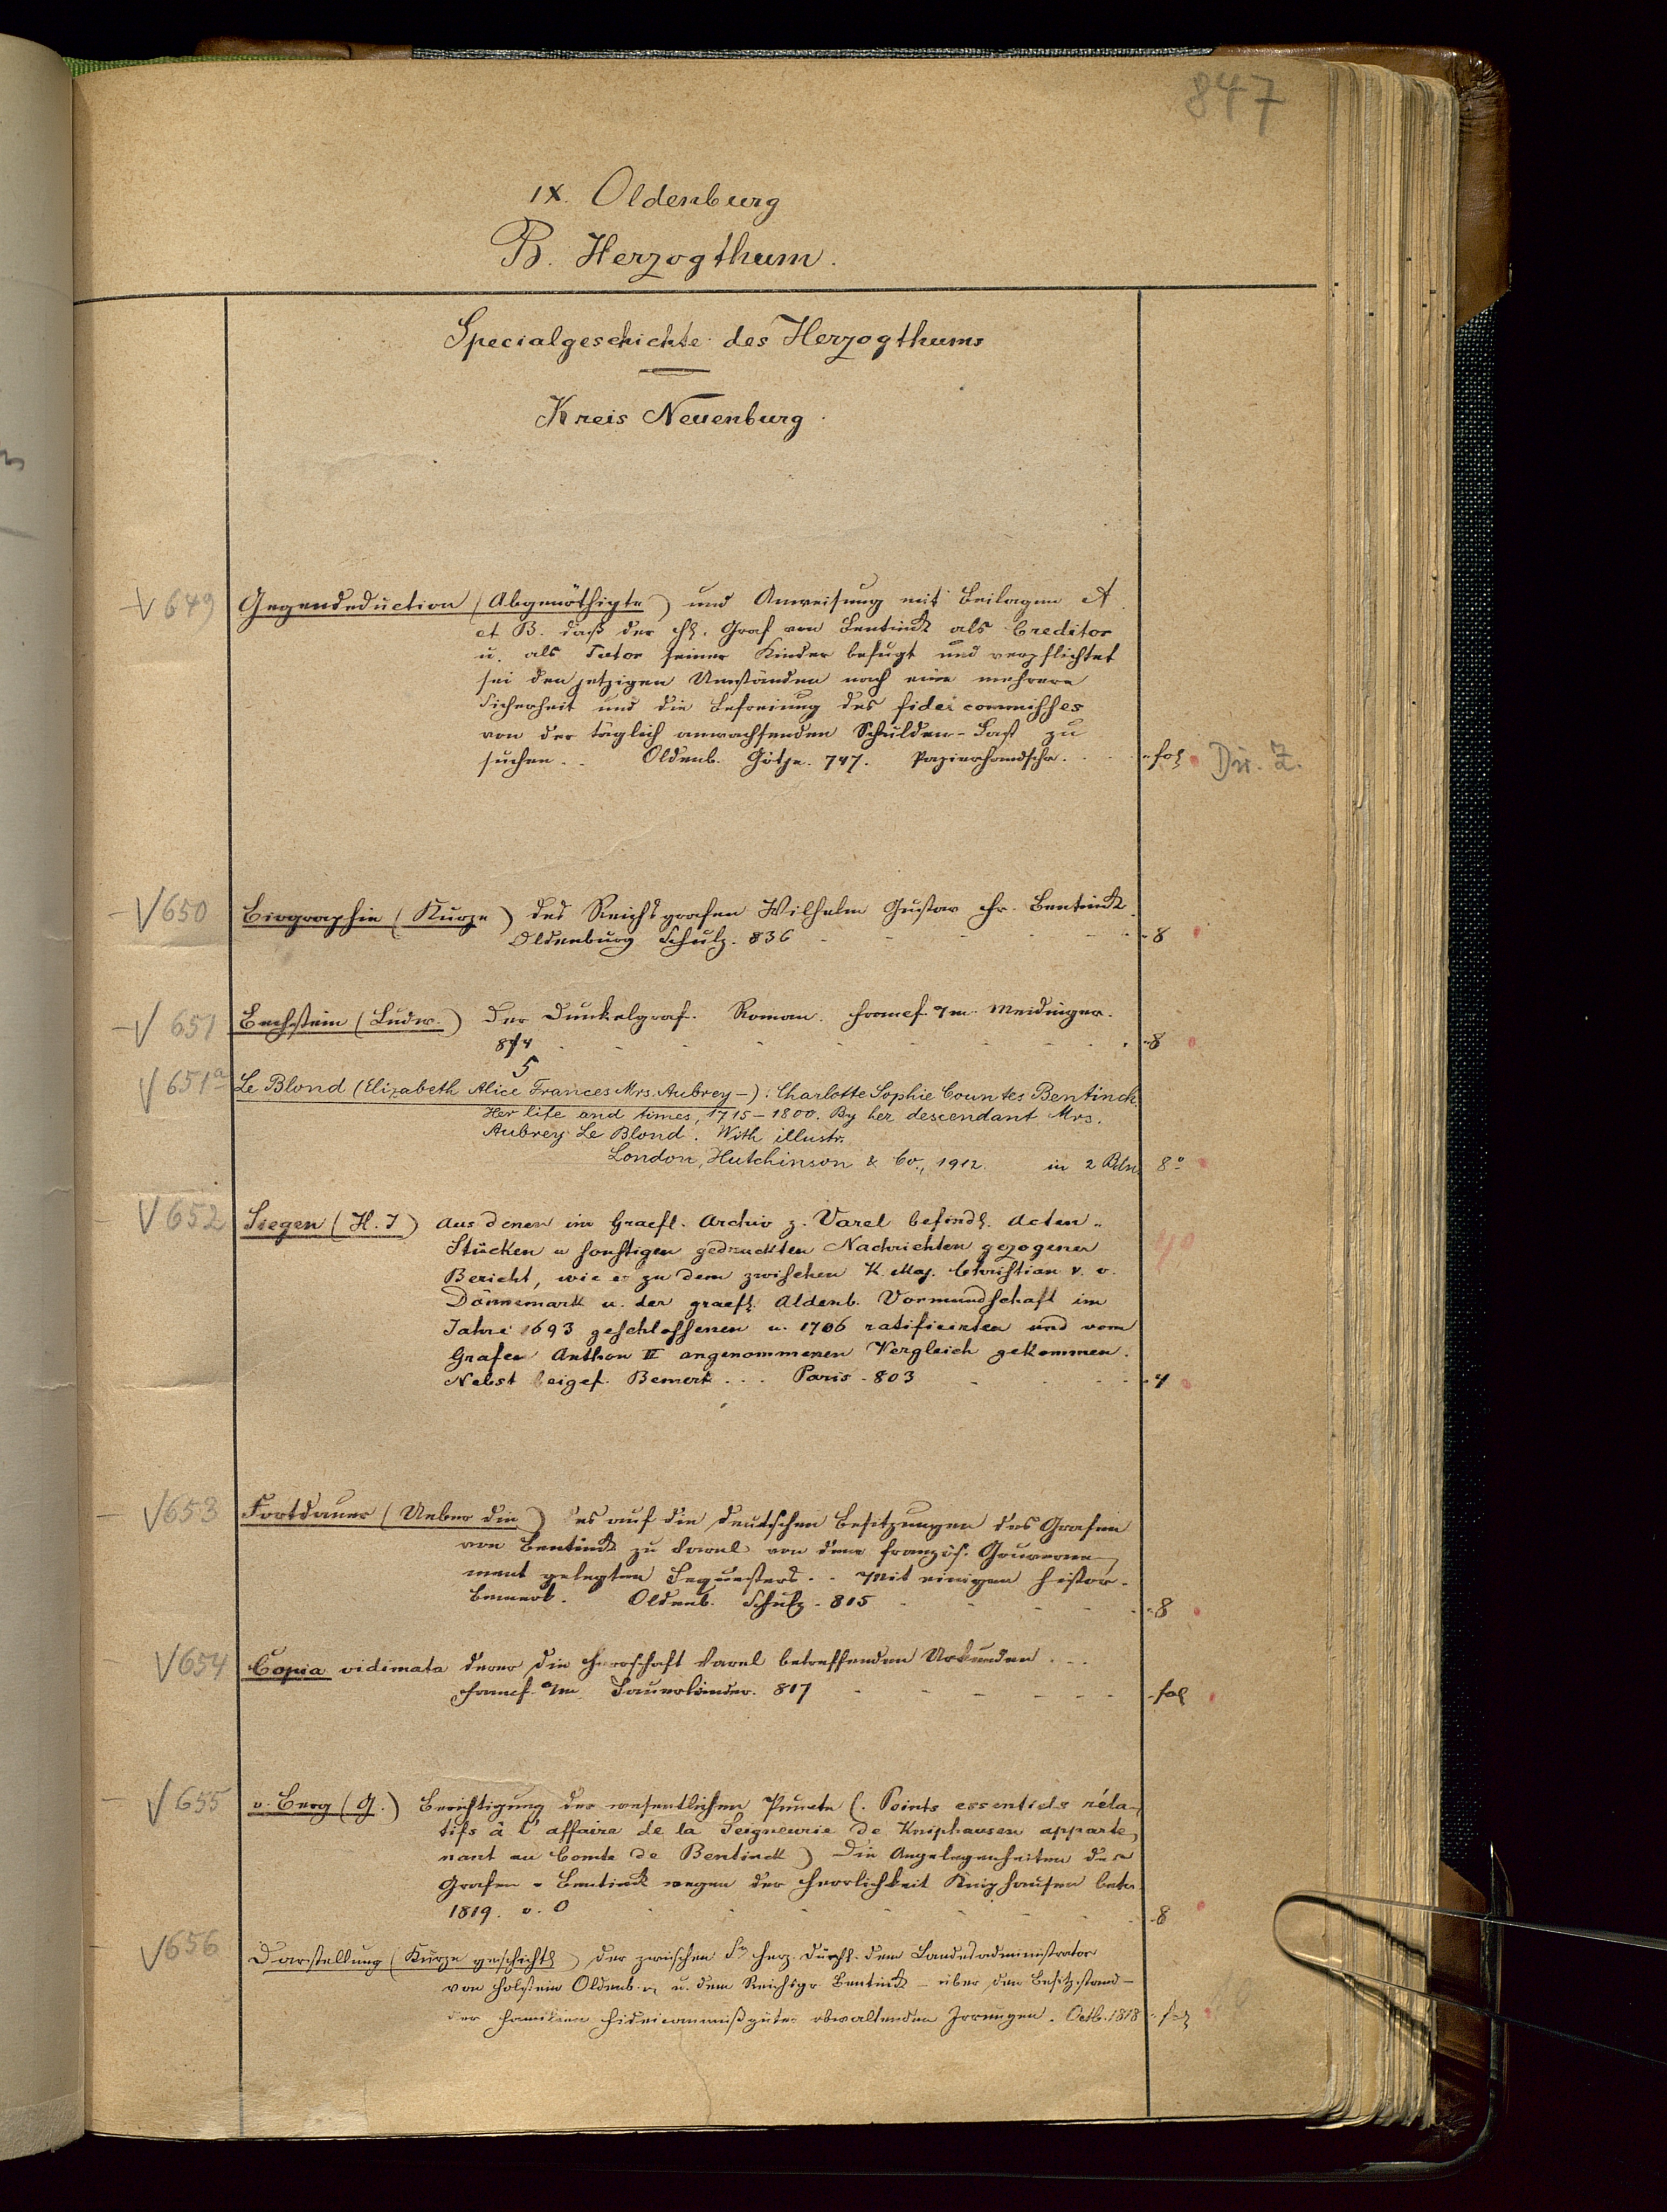 847
IX. Oldenburg
B. Herzogthum.
Specialgeschichte des Herzogthums
Kreis Neuenburg.
V 649 Gegendeduction (Abgenöthigte) und Anweisung mit Beilagen A
et B. daß der H. Graf von Bentinck als Creditor
u. als Tutor seiner Kinder befugt und verpflichtet
sei den jetzigen Umständen nach eine mehrere
Sicherheit und die Befreiung des fideicommisses
von der täglich anwachsenden Schulden-Last zu
suchen . . Oldenb. Götje. 747. Papierhandschr. fol Dü. Z.
V 650 Biographie (Kurze) des Reichsgrafen Wilhelm Gustav Fr. Bentinck.
Oldenburg Schulz. 836 - 8
V 651 Bechstein (Ludw.) Der Dunkelgraf. Roman. Francf. a/m. Meidinger.
854 - 8
5
V 651a Le Blond (Elizabeth Alice Frances Mrs. Aubrey -): Charlotte Sophie Countes Bentinck.
Her life and times, 1715-1800. By her descendant Mrs.
Aubrey Le Blond. With illustr.
London, Hutchinson & Co., 1912. in 2 Bdn. 8°
V 652 Siegen (H. J) Aus denen im Graefl. Archiv z. Varel befindl. Acten-
Stücken u sonstigen gedruckten Nachrichten gezogener
Bericht, wie es zu dem zwischen K. Maj. Christian V. v.
Dännemark u. der graefl. Aldenb. Vormundschaft im
Jahre 1693 geschlossenen u. 1706 ratificirten und vom
Grafen Anthon II angenommenen Vergleich gekommen.
Nebst beigef. Bemerk . . . Paris. 803 - 4
V 653 Fortdauer (Ueber die) des auf die deutschen Besitzungen des Grafen
von Bentinck zu Varel von dem französ. Gouverne-
ment gelegten Sequesters . . Mit einigen histor.
Bemerk. Oldenb. Schulz. 815 - 8
V 654 Copia vidimata derer die Herrschaft Varel betreffenden Urkunden . . .
Francf. a/m. Sauerländer. 817 - fol
V 655 v. Berg (G.) Berichtigung der wesentlichen Puncte (. Points essentiels réla-
tifs à l'affaire de la Seigneurie de Kniphausen apparte-
nant au Comte de Bentinck) Die Angelegenheiten des
Grafen - Bentinck wegen der Herrlichkeit Kniphausen betr.
1819. o. O - 8
V 656 Darstellung (Kurze geschichtl) der zwischen Sr Herz. Durchl. dem Landesadministrator
von Holstein Oldenb. u. dem Reichsgr Bentinck - über den Besitzstand -
der Familien Fideicommißgüter obwaltenden Irrungen. Octb. 1818 - fol